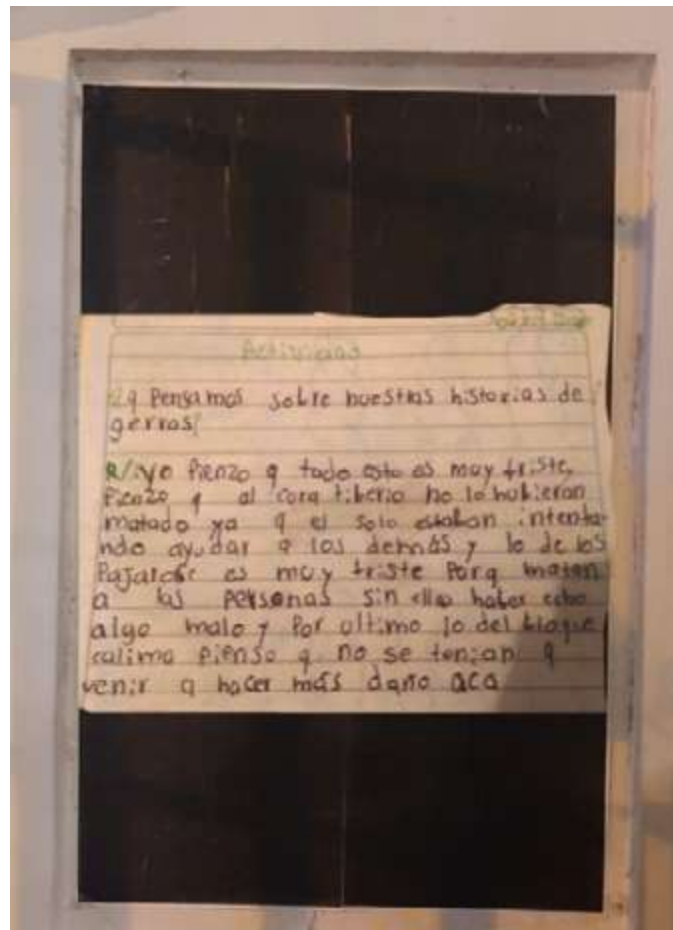 Actividad
¿q Pensamos sobre nuestras historias de
gerras?
R/ yo Pienzo q todo esto es muy triste,
Pienzo q al cora tiberio no lo hubieran
matado ya q el solo estaban intenta-
ndo ayudar a los demás y lo de los
Pajaros es muy triste Porq matan
a las personas sin ellos haber echo
algo malo y Por ultimo lo del bloque
calima Pienso q no se tenian q
venir a hacer más daño aca